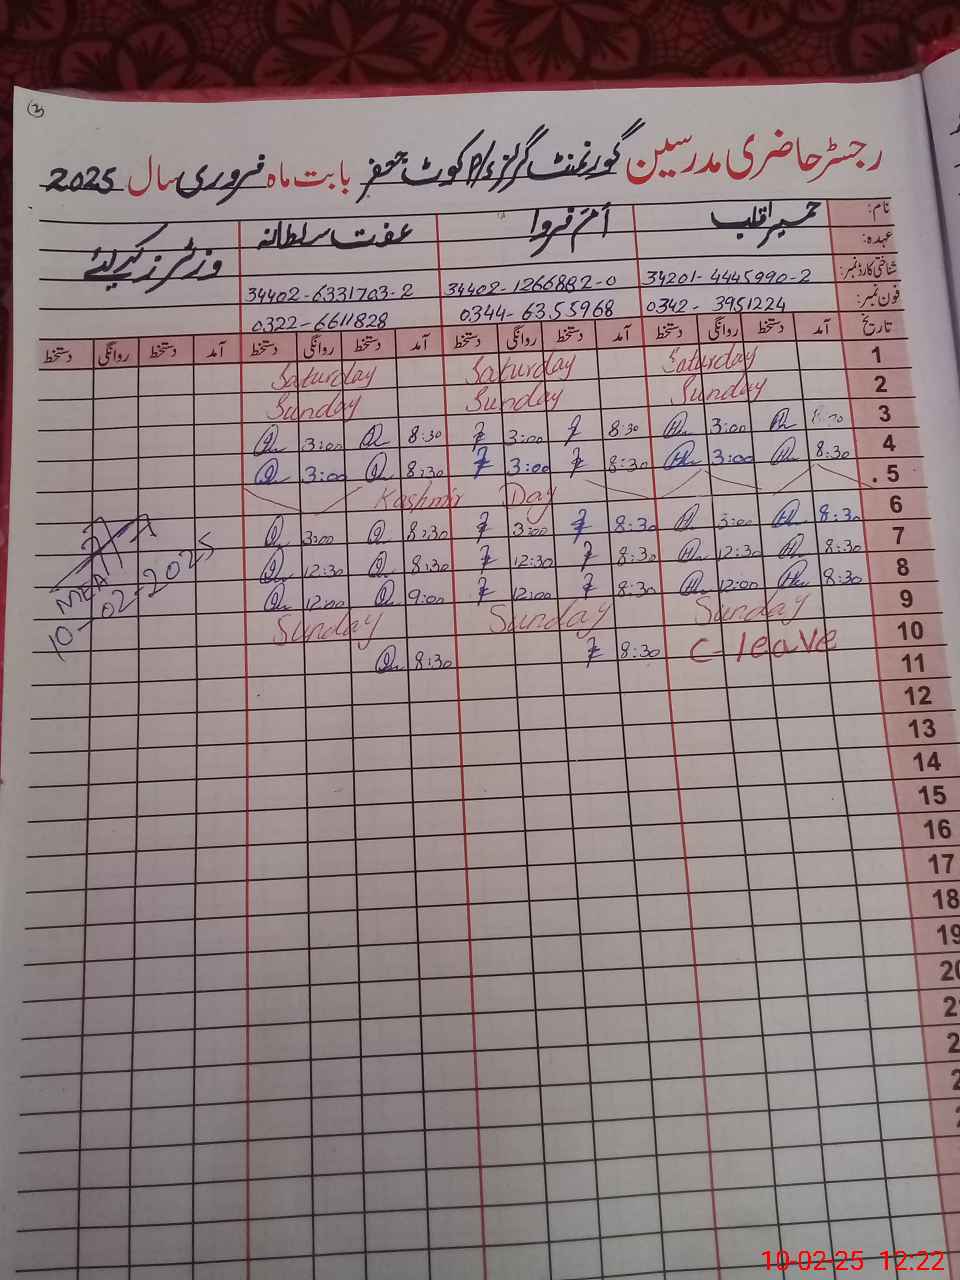 رجسٹر حاضری مدرسین گورنمنٹ گرلز کوٹ جعفر بابت ماہ فروری سال 2025
نام: اُم فروا عفت سلطانہ وزٹرز کیلئے
عہدہ:
شناختی کارڈ نمبر: 34201-4445990-2 34402-1266882-0 34402-6331703-2
فون نمبر: 0342-3951224 0344-6355968 0322-6611828
تاریخ آمد دستخط روانگی دستخط آمد دستخط روانگی دستخط آمد دستخط روانگی دستخط آمد دستخط روانگی دستخط
1 Saturday Saturday Saturday
2 Sunday Sunday Sunday
3 3:00 8:30 3:00 8:30 3:00
4 8:30 3:00 8:30 3:00 8:30 3:00
5 Kashmir Day
6 8:30 3:00 8:30 3:00 8:30 3:00
7 8:30 12:30 8:30 12:30 8:30 12:30
8 8:30 12:00 8:30 12:00 9:00 12:00
9 Sunday Sunday Sunday
10 C-leave 8:30 8:30
MEA
10-02-2025
11
12
13
14
15
16
17
18
19
10-02-25 12:22